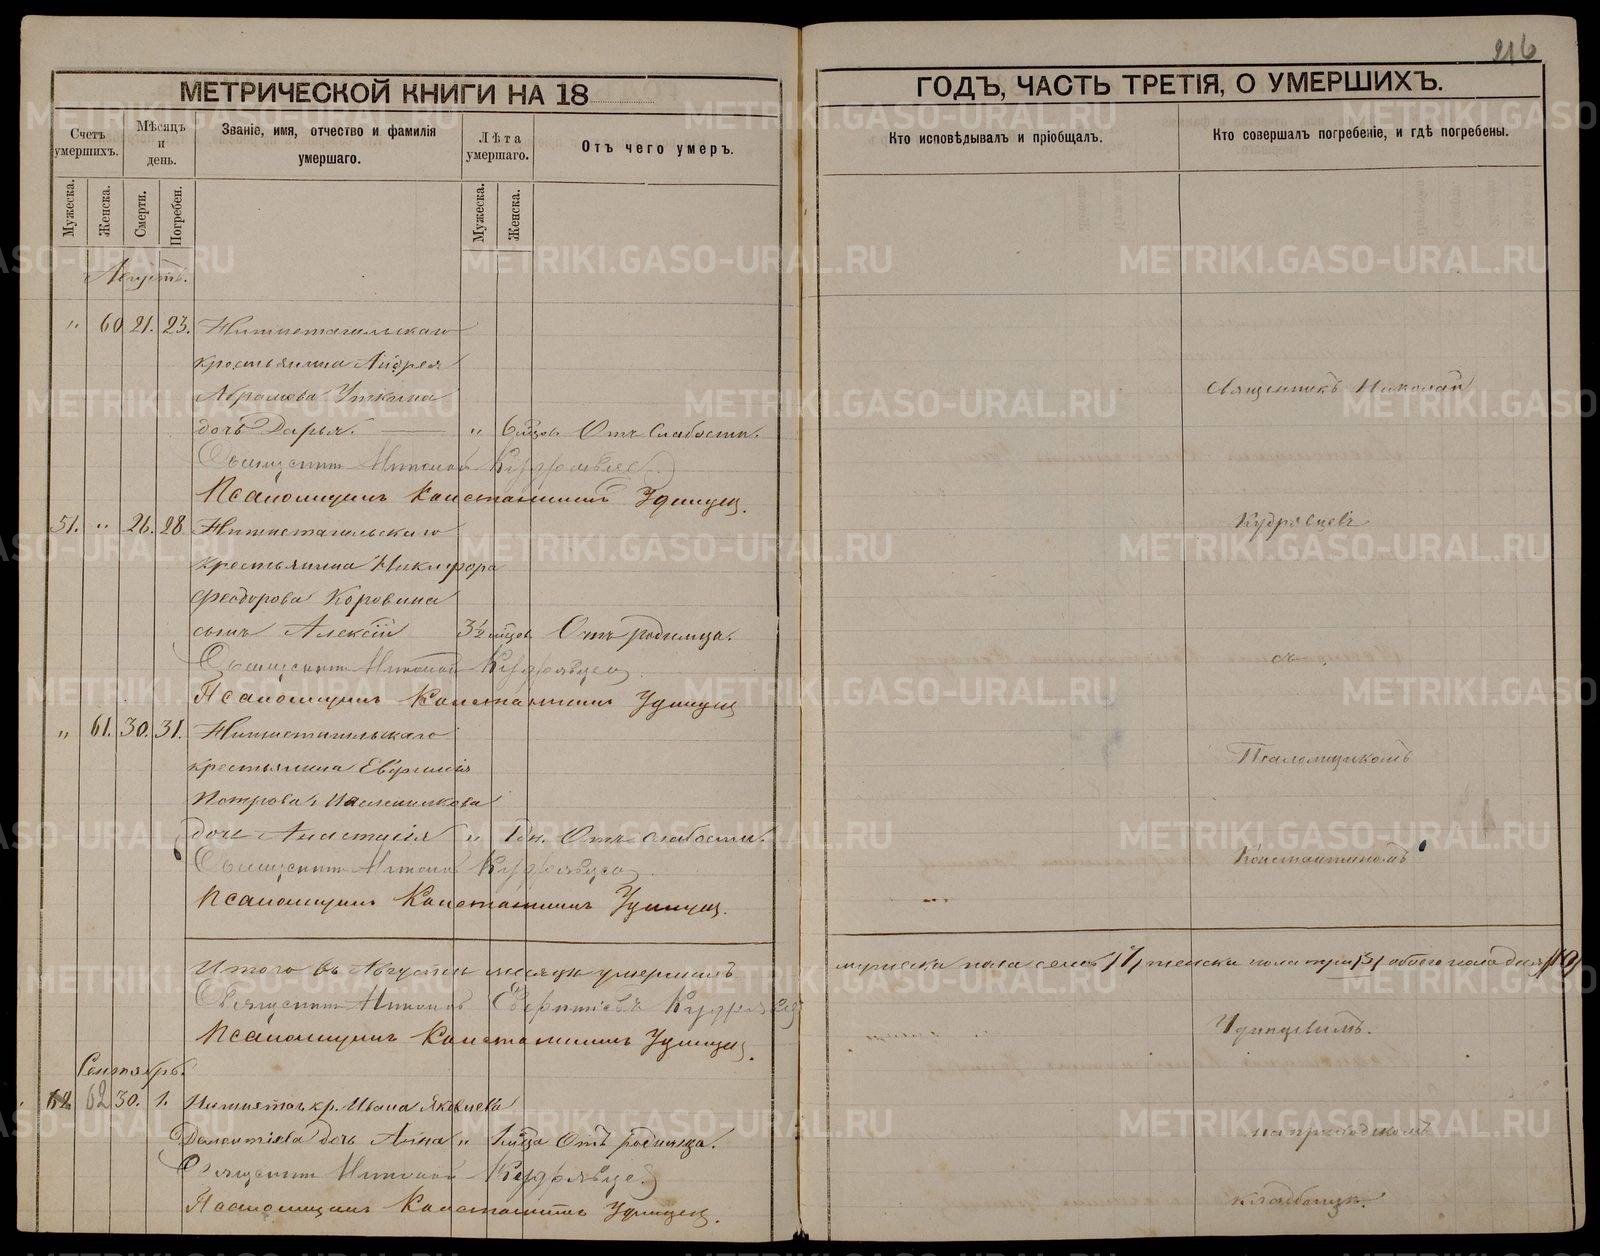 216
МЕТРИЧЕСКОЙ КНИГИ НА 18
ГОДЪ, ЧАСТЬ ТРЕТІЯ, О УМЕРШИХЪ.
Счетъ умершихъ.
Мѣсяцъ и день.
Званіе, имя, отчество и фамилія умершаго.
Лѣта умершаго.
Отъ чего умеръ.
Кто исповѣдывалъ и пріобщалъ.
Кто совершалъ погребеніе, и гдѣ погребены.
Мужеска.
Женска.
Смерти.
Погребен.
Мужеска.
Женска.
Августъ.
" 60 21. 23. Нижнетагильскаго
крестьянина Андрея
Абрамова Уткина
дочь Дарья. " 6 мцов. Отъ слабости.
Священникъ Николай Кудрявцев
Псаломщикъ Константинъ Удинцев.
51. " 26. 28 Нижнетагильскаго
крестьянина Никифора
Феодорова Коровина
сынъ Алексій 3½ мцов. Отъ родимца.
Священникъ Николай Кудрявцев
Псаломщикъ Константинъ Удинцев
" 61. 30. 31. Нижнетагильскаго
крестьянина Евфимія
Петрова
дочь Анастасія " 1 дн. Отъ слабости.
Священникъ Николай Кудрявцев
Псаломщикъ Константинъ Удинцев.
Итого въ Августѣ мѣсяцѣ умершихъ
мужеска пола семь /7/ женска пола три /3/ обоего пола десять /10/
Священникъ Николай Кудрявцев
Псаломщикъ Константинъ Удинцев.
Сентябрь.
62 30. 1. Нижнетаг. кр. Ивана Яковлева
дочь Анна " 1 мца Отъ родимца.
Священникъ Николай Кудрявцев
Псаломщикъ Константинъ Удинцев.
Священникъ Николай
Кудрявцевъ
съ
Псаломщикомъ
Константиномъ
Удинцевымъ.
на приходскомъ
кладбищѣ.
METRIKI.GASO-URAL.RU